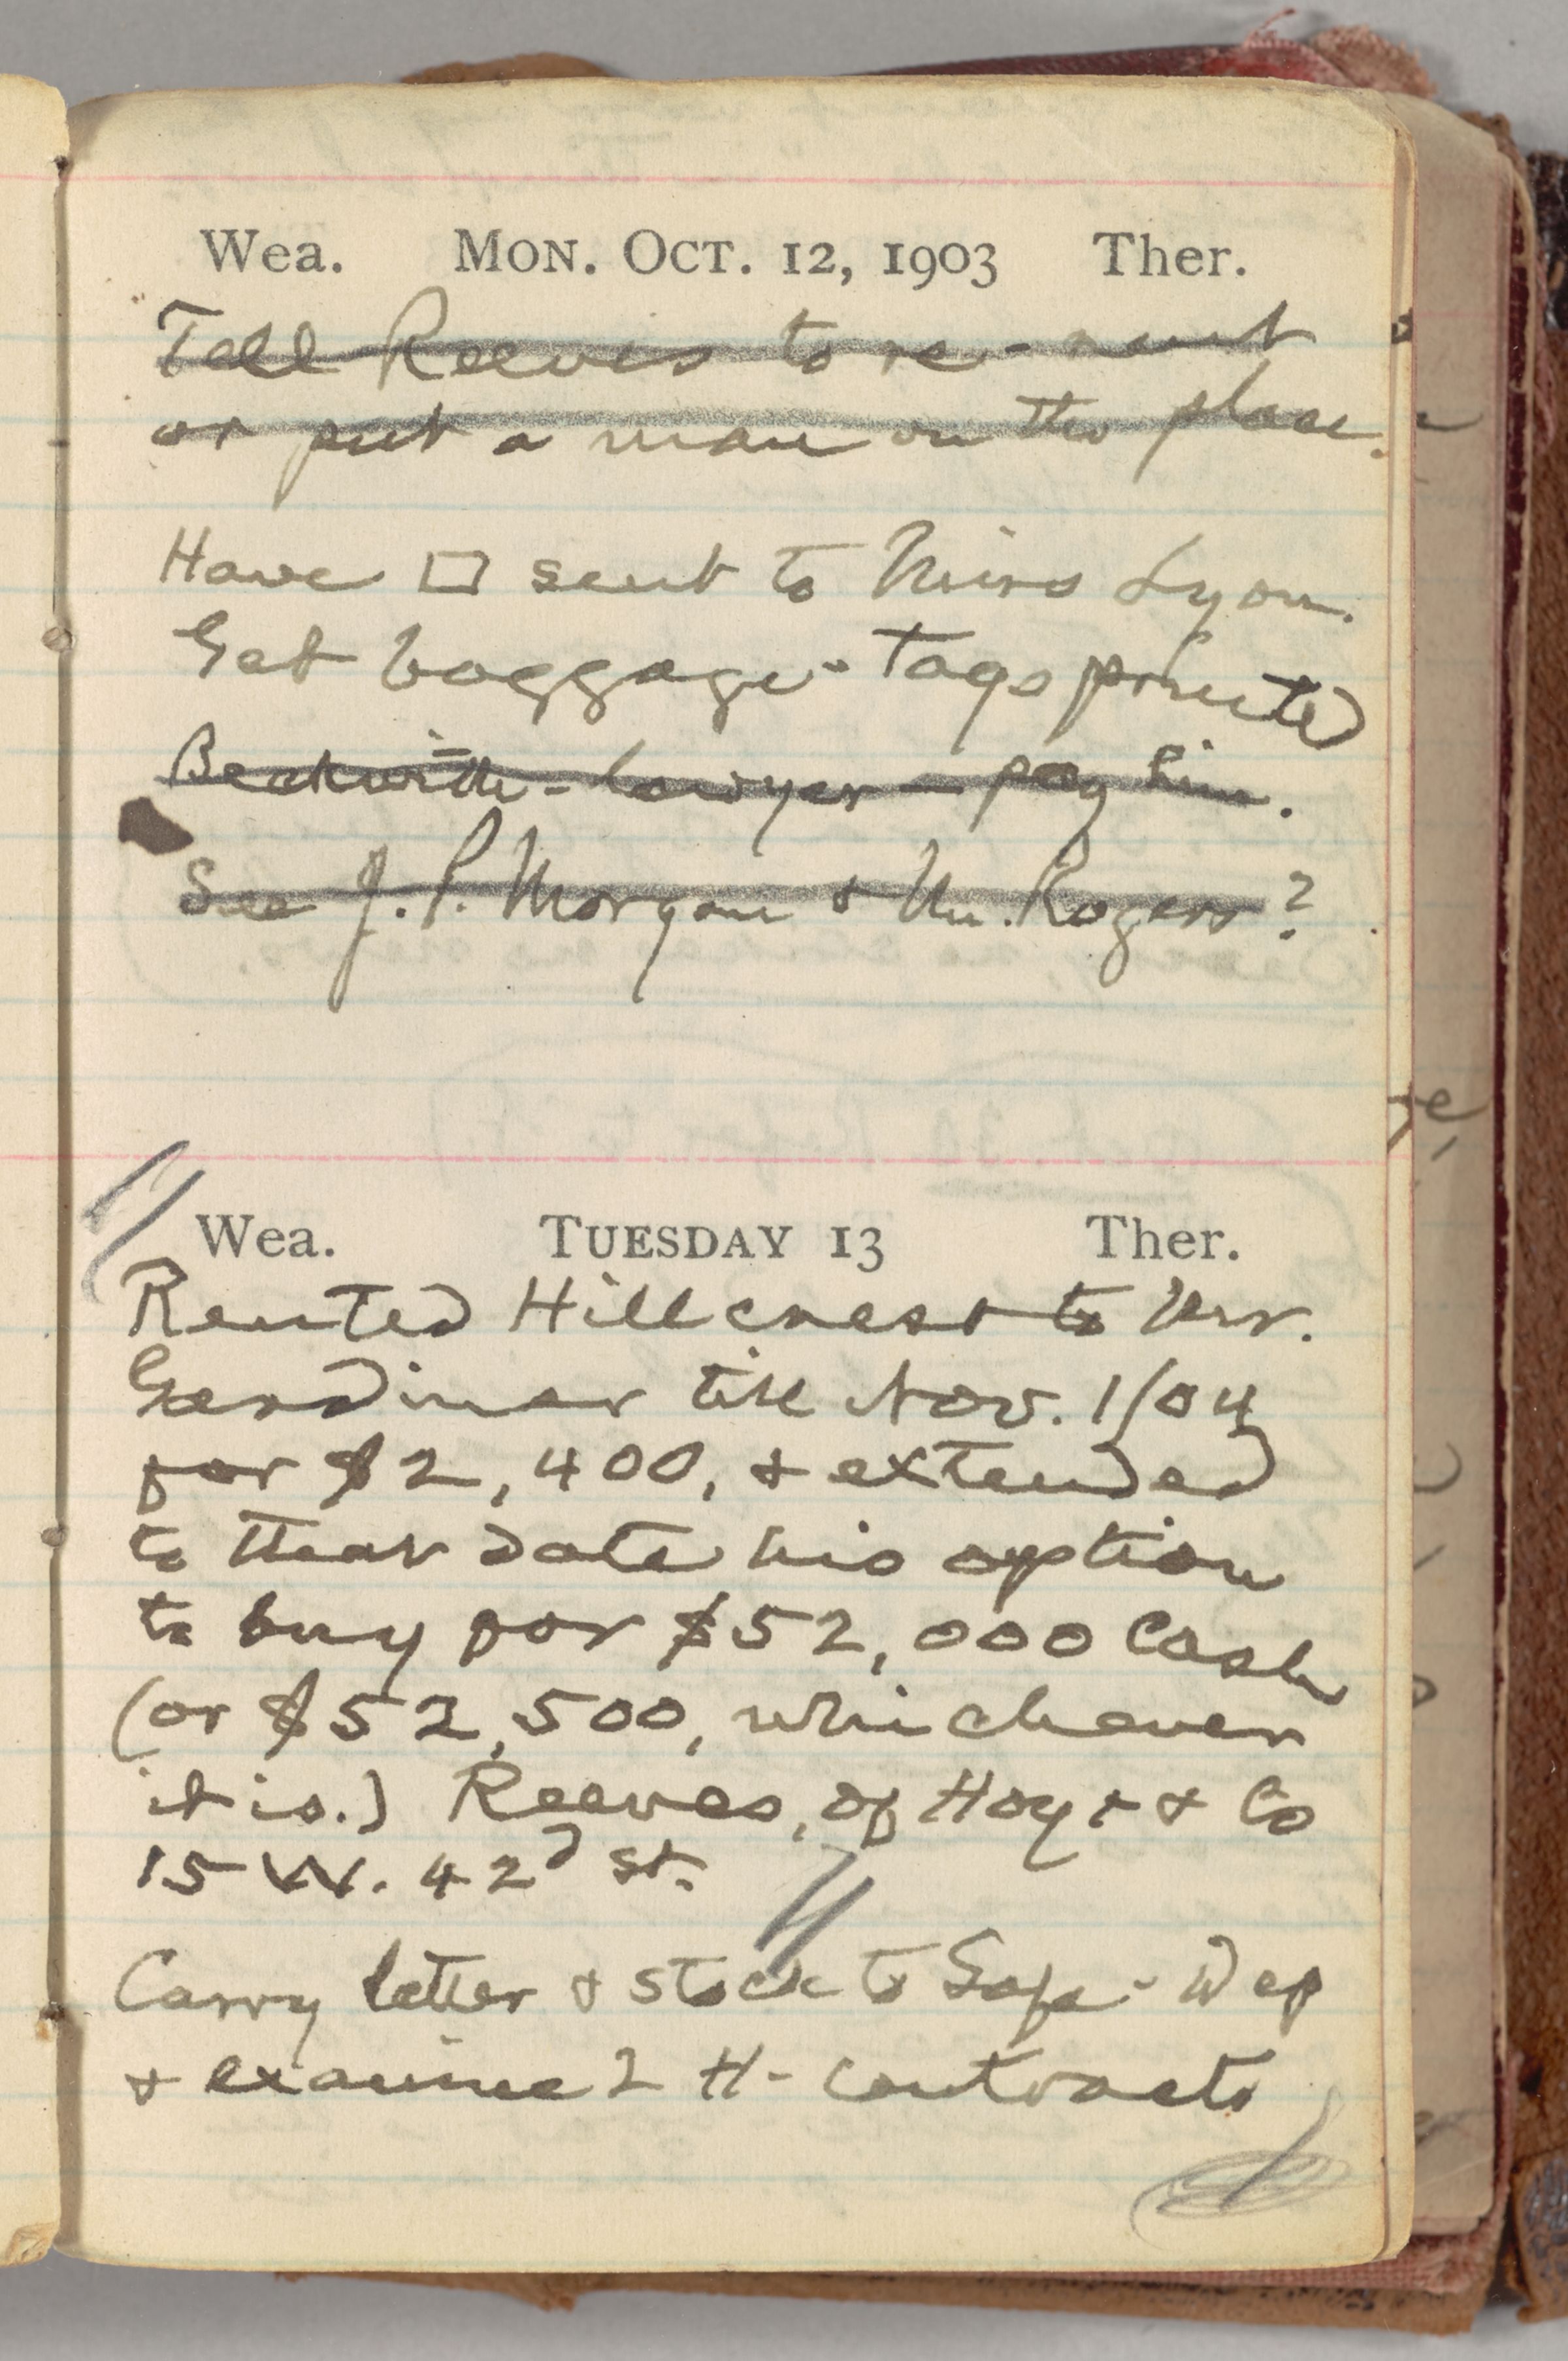 Wea. MON. OCT. 12, 1903 Ther.
Tell Reeves to re-rent
or put a man on the place.
Have □ sent to Miss Lyon.
Get baggage-tags printed
Beckwith - lawyer - pay him.
See J. P. Morgan & Mr. Rogers?
Wea. TUESDAY 13 Ther.
Rented Hillcrest to Mr.
Gardiner till Nov. 1/04
for $2,400, & extended
to that date his option
to buy for $52,000 cash
(or $52,500, whichever
it is.) Reeves, of Hoyt & Co
15 W. 42d st.
Carry letter & stock to Safe-Dep
& examine 2 H- contracts